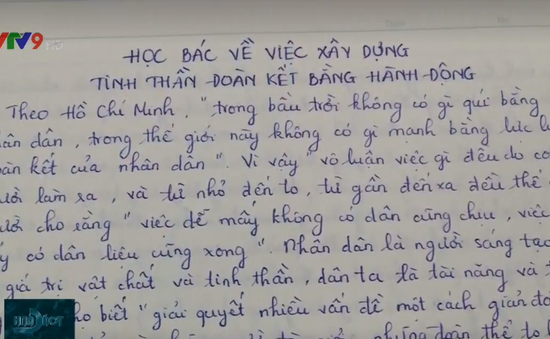 VTV9
HỌC BÁC VỀ VIỆC XÂY DỰNG
TINH THẦN ĐOÀN KẾT BẰNG HÀNH ĐỘNG
Theo Hồ Chí Minh, "trong bầu trời không có gì quí bằng
dân, trong thế giới này không có gì mạnh bằng lực
kết của nhân dân". Vì vậy "vô luận việc gì đều do
làm ra, và từ nhỏ đến to, từ gần đến xa đều thế
cho rằng "việc dễ mấy không có dân cũng chịu, việc
có dân liệu cũng xong". Nhân dân là người sáng tạo
giá trị vật chất và tinh thần, dân ta là tài năng và
biết "giải quyết nhiều vấn đề một cách giản
những đoàn thể to